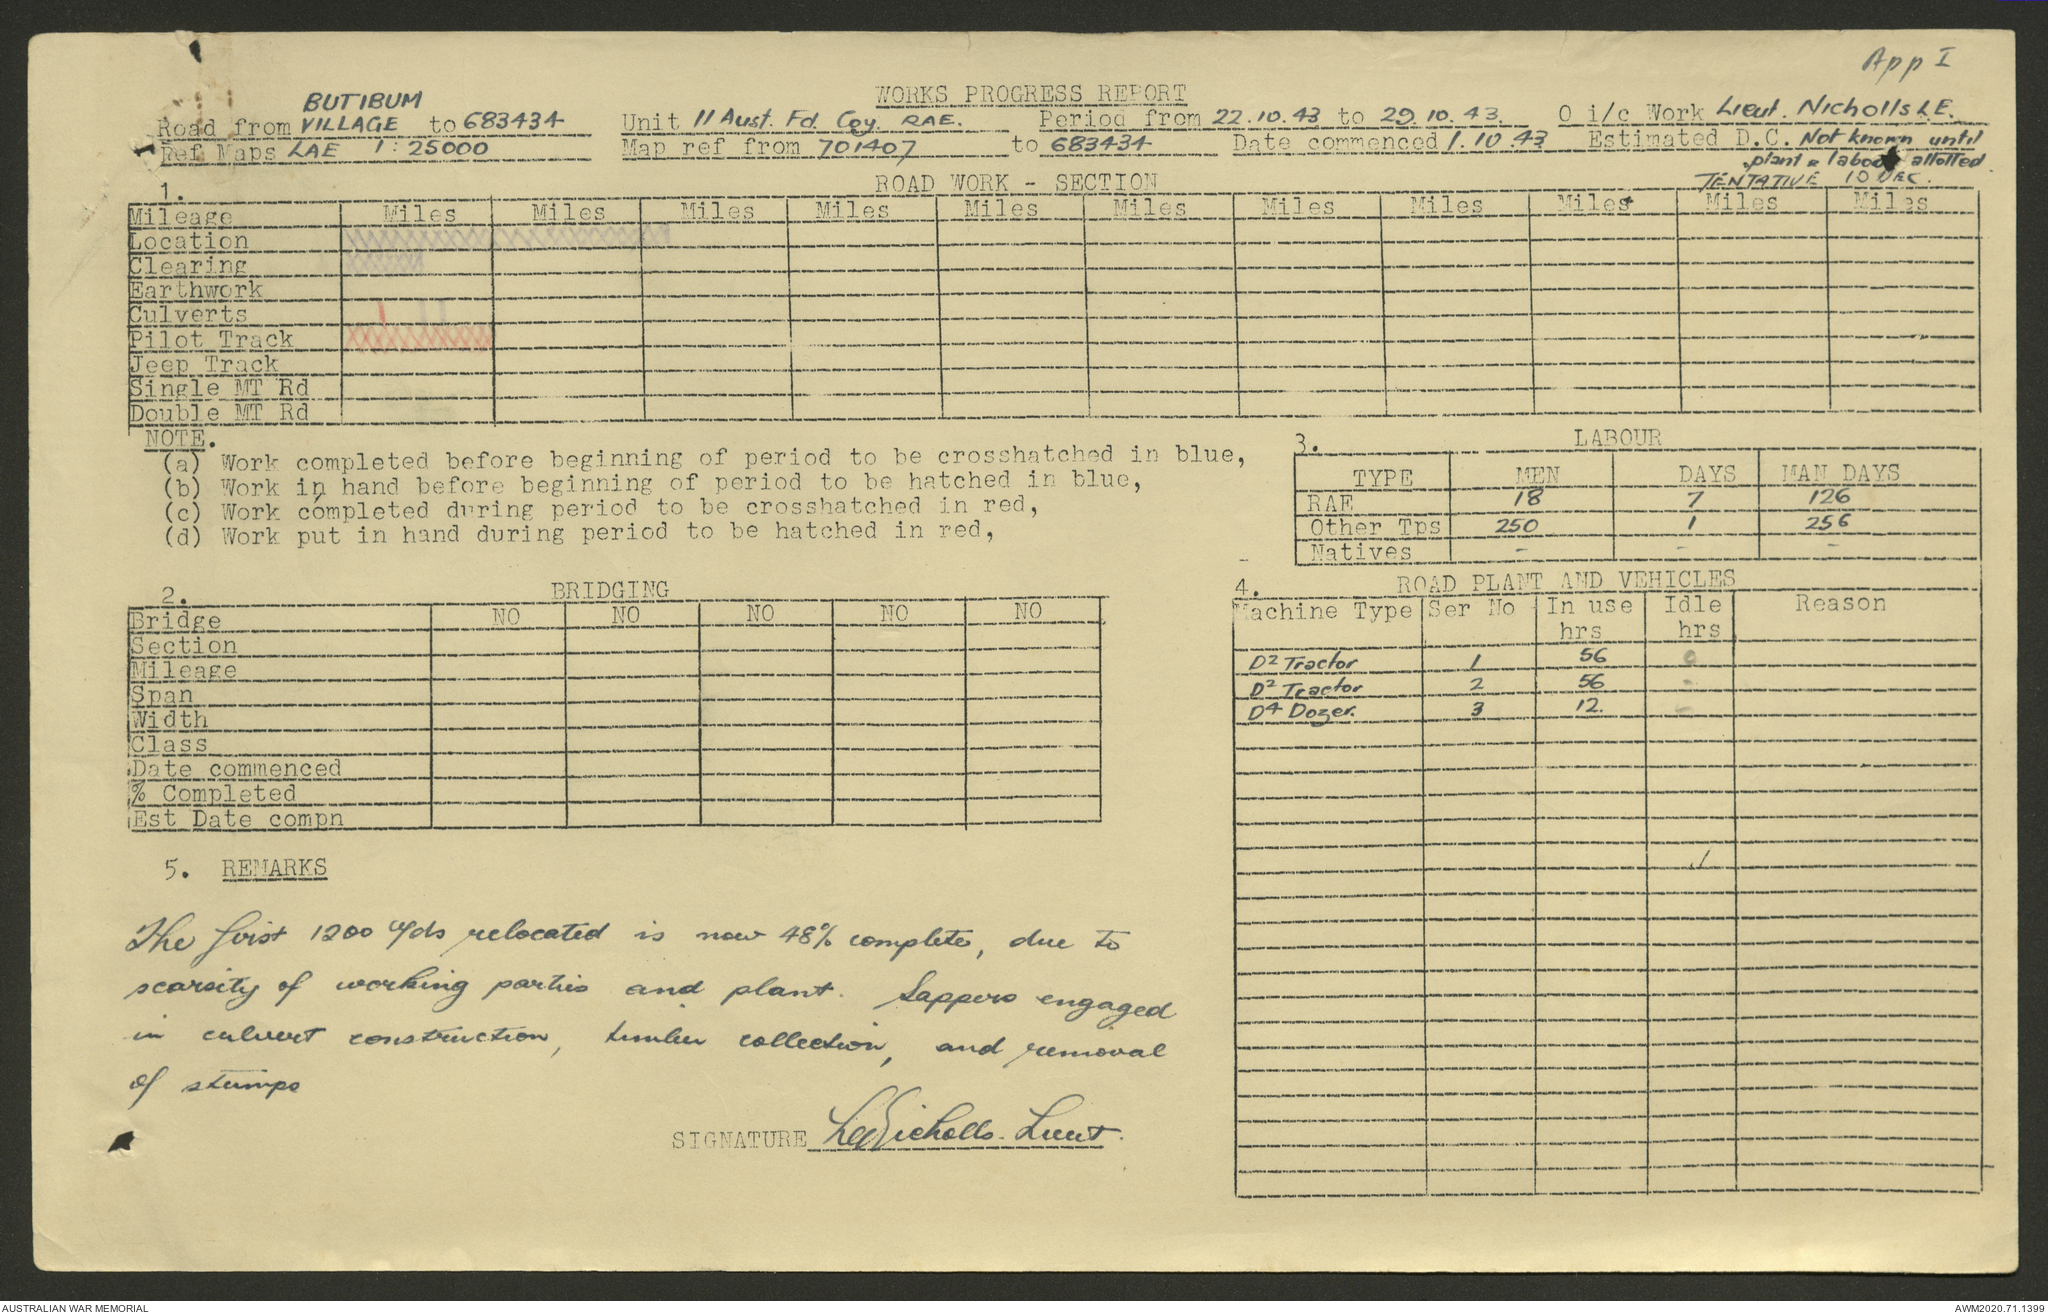 App I
WORKS PROGRESS REPORT
Road from BUTIBUM VILLAGE to 683434 Unit 11 Aust. Fd. Coy. RAE. Period from 22.10.43 to 29.10.43. O i/c Work Lieut. Nicholls L.E.
Ref Maps LAE 1:25000 Map ref from 701407 to 683434 Date commenced 1.10.43 Estimated D.C. Not known until
plant & labour allotted
TENTATIVE 10 DEC.
1. ROAD WORK - SECTION
Mileage Miles Miles Miles Miles Miles Miles Miles Miles Miles Miles Miles
Location
Clearing
Earthwork
Culverts
Pilot Track
Jeep Track
Single MT Rd
Double MT Rd
NOTE.
(a) Work completed before beginning of period to be crosshatched in blue,
(b) Work in hand before beginning of period to be hatched in blue,
(c) Work completed during period to be crosshatched in red,
(d) Work put in hand during period to be hatched in red,
3. LABOUR
TYPE MEN DAYS MAN DAYS
RAE 18 7 126
Other Tps 250 1 256
Natives - - -
2. BRIDGING
Bridge NO NO NO NO NO
Section
Mileage
Span
Width
Class
Date commenced
% Completed
Est Date compn
4. ROAD PLANT AND VEHICLES
Machine Type Ser No In use hrs Idle hrs Reason
D2 Tractor 1 56 0
D2 Tractor 2 56 -
D4 Dozer. 3 12. -
5. REMARKS
The first 1200 yds relocated is now 48% complete, due to
scarcity of working parties and plant. Sappers engaged
in culvert construction, timber collection, and removal
of stumps
SIGNATURE LENicholls. Lieut.
AUSTRALIAN WAR MEMORIAL
AWM2020.71.1399